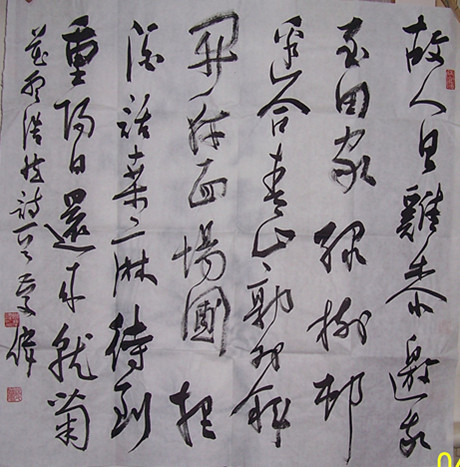 故人具雞黍邀我
至田家綠樹邨
邊合青山郭外斜
開軒面場圃把
酒話桑麻待到
重陽日還來就菊
花孟浩然詩一首偉